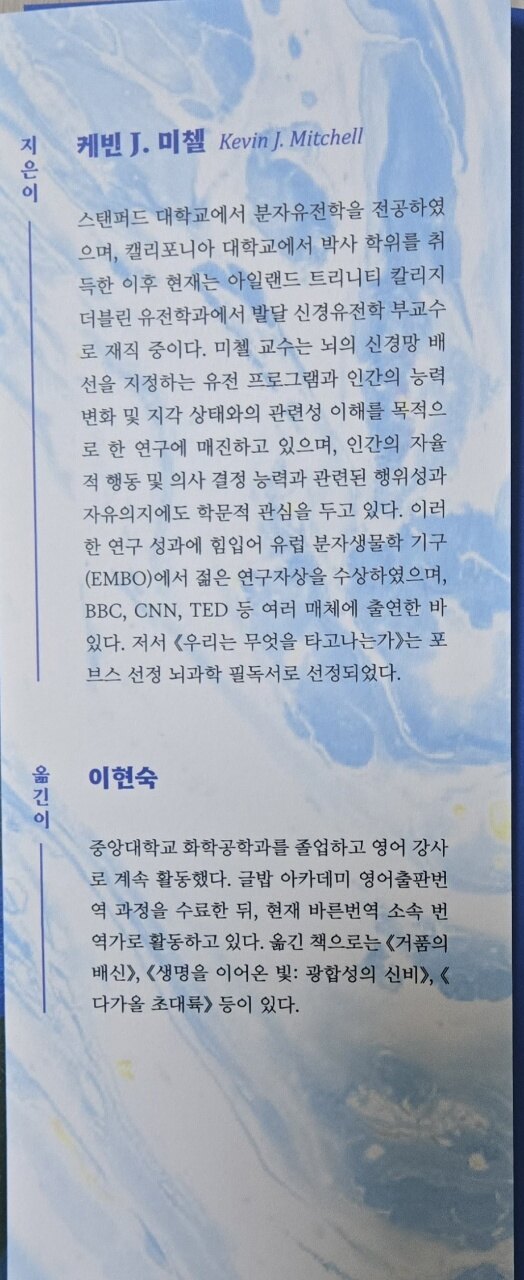 지은이
케빈 J. 미첼 Kevin J. Mitchell
스탠퍼드 대학교에서 분자유전학을 전공하였
으며, 캘리포니아 대학교에서 박사 학위를 취
득한 이후 현재는 아일랜드 트리니티 칼리지
더블린 유전학과에서 발달 신경유전학 부교수
로 재직 중이다. 미첼 교수는 뇌의 신경망 배
선을 지정하는 유전 프로그램과 인간의 능력
변화 및 지각 상태와의 관련성 이해를 목적으
로 한 연구에 매진하고 있으며, 인간의 자율
적 행동 및 의사 결정 능력과 관련된 행위성과
자유의지에도 학문적 관심을 두고 있다. 이러
한 연구 성과에 힘입어 유럽 분자생물학 기구
(EMBO)에서 젊은 연구자상을 수상하였으며,
BBC, CNN, TED 등 여러 매체에 출연한 바
있다. 저서 《우리는 무엇을 타고나는가》는 포
브스 선정 뇌과학 필독서로 선정되었다.
옮긴이
이현숙
중앙대학교 화학공학과를 졸업하고 영어 강사
로 계속 활동했다. 글밥 아카데미 영어출판번
역 과정을 수료한 뒤, 현재 바른번역 소속 번
역가로 활동하고 있다. 옮긴 책으로는 《거품의
배신》, 《생명을 이어온 빛: 광합성의 신비》, 《
다가올 초대륙》 등이 있다.